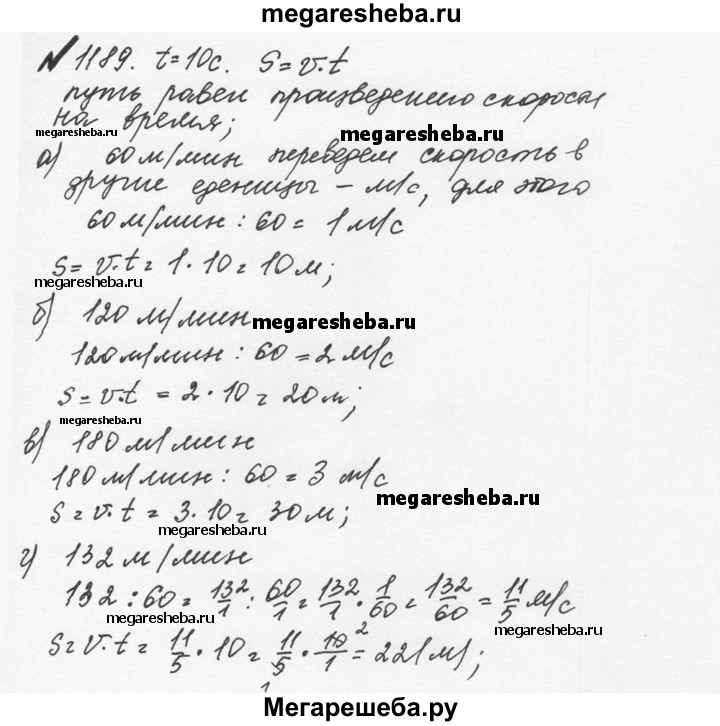 megaresheba.ru
№1189. t=10с. S=v.t
путь равен произведению скорости
на время;
megaresheba.ru megaresheba.ru
а) 60 м/мин переведем скорость в
другие еденицы – м/с, для этого
60 м/мин : 60 = 1 м/с
S = v.t = 1 · 10 = 10 м;
megaresheba.ru
б) 120 м/мин
megaresheba.ru
120 м/мин : 60 = 2 м/с
S = v.t = 2 · 10 = 20 м;
megaresheba.ru
в) 180 м/мин
180 м/мин : 60 = 3 м/с
megaresheba.ru
S = v.t = 3 · 10 = 30 м;
megaresheba.ru
г) 132 м/мин
132 : 60 = 132/1 : 60/1 = 132/1 · 1/60 = 132/60 = 11/5 м/с
megaresheba.ru
S = v.t = 11/5 · 10 = 11/5 · 10/1 = 22 (м);
2
1
Мегарешеба.ру